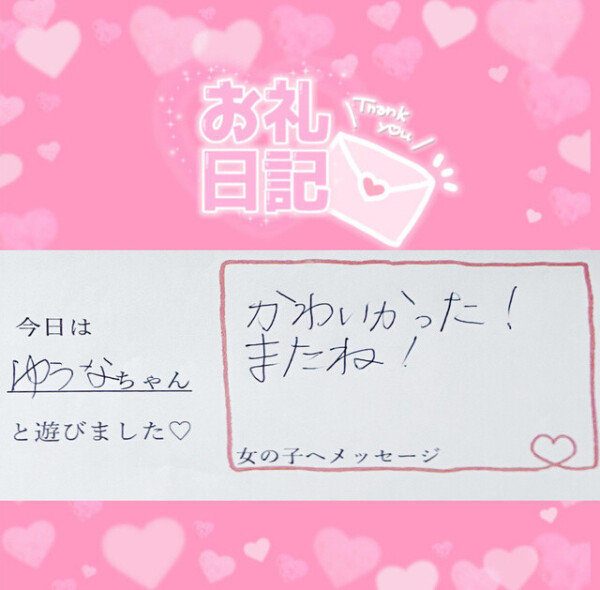 お礼
日記
Thank
you
今日は
ゆうなちゃん
と遊びました♡
かわいかった！
またね！
女の子へメッセージ